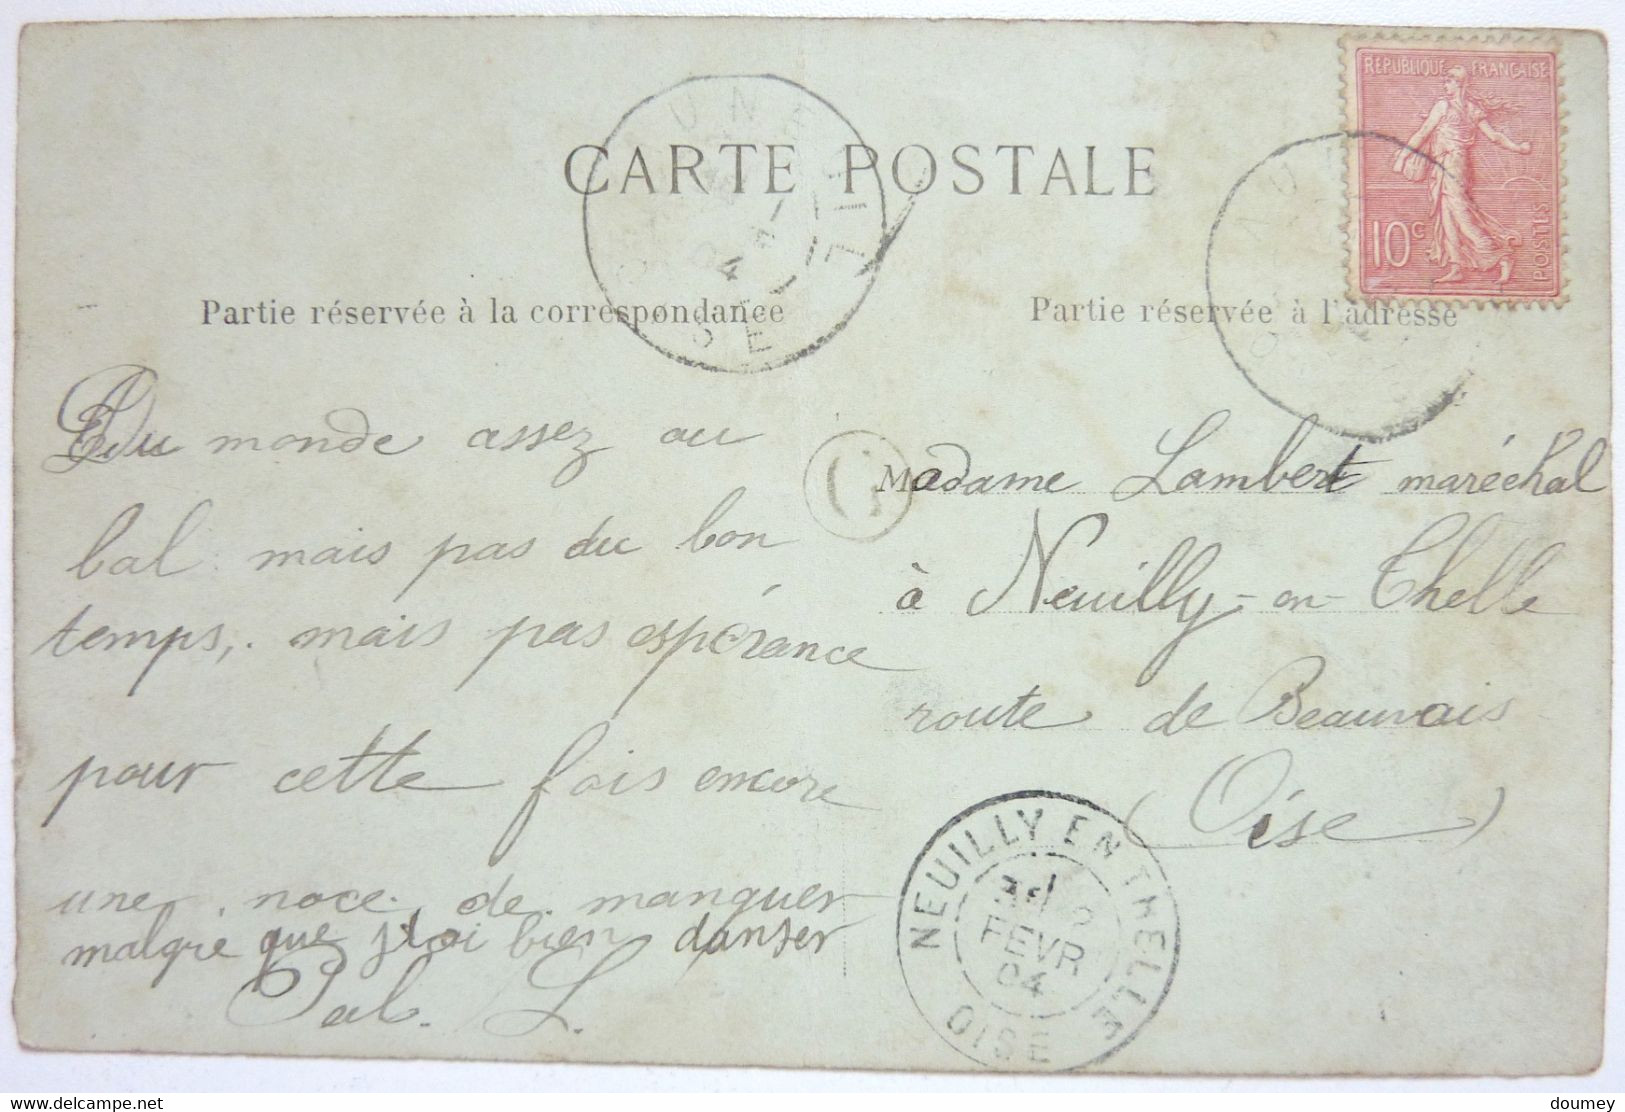 REPUBLIQUE FRANÇAISE
10c
POSTES
CARTE POSTALE
Partie réservée à la correspondance
Partie réservée à l'adresse
du monde assez au
bal mais pas du bon
temps, mais pas espérance
pour cette fois encore
une noce de manquer
malgré que bien danser
Pal. L.
Madame Lambert maréchal
à Neuilly-en-Thelle
route de Beauvais
(Oise)
NEUILLY EN THELLE
FEVR
04
OISE
doumey